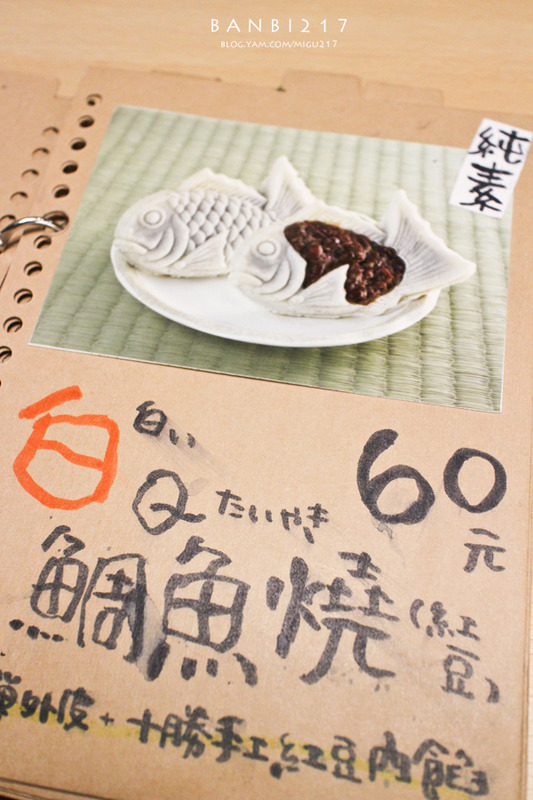 BANBI217
BLOG.YAM.COM/MIGU217
純素
白
白い
Q たいやき
60元
鯛魚燒
(紅豆)
彈外皮+十勝手工紅豆內餡